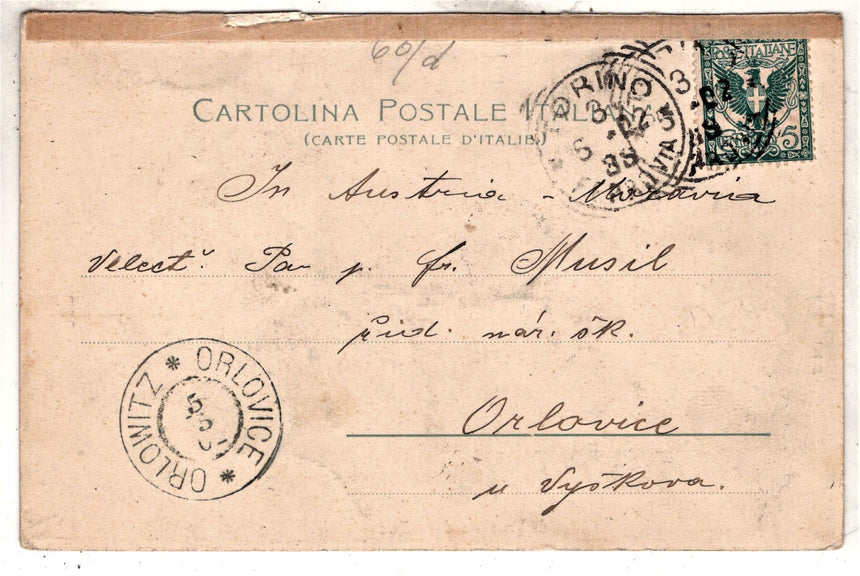 60/d
CARTOLINA POSTALE ITALIANA
(CARTE POSTALE D'ITALIE)
TORINO
5
FERROVIA
POSTE ITALIANE
5
In Austria - Moravia
Velect. Pan p. fr. Musil
řid. nár. šk.
Orlovice
u Vyškova.
ORLOWITZ * ORLOVICE *